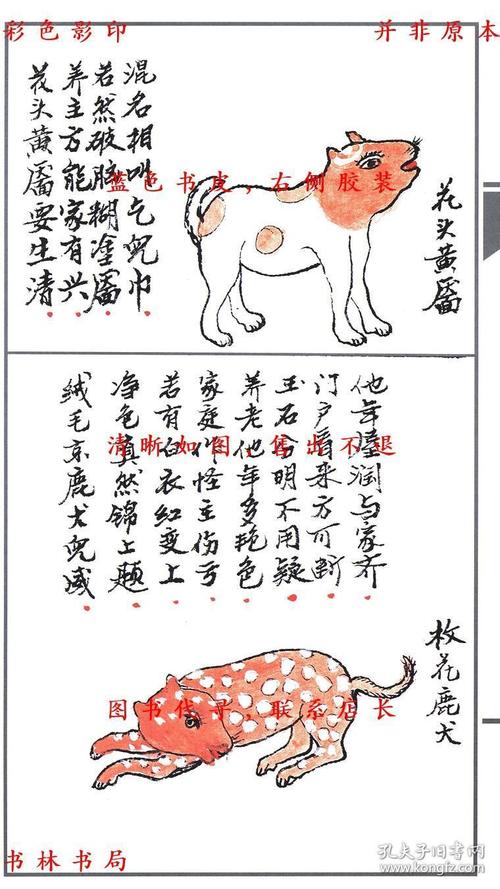 彩色影印
并非原本
花头黄靥
花头黄靥要生清
养主方能家有兴
若然破脸糊塗靥
混名相叫乞児巾
蓝色书皮，右侧胶装
绒毛京鹿犬児
净色真然锦上题
若有白衣红变上
家庭作怪主伤亏
养老他年多艳色
玉石分明不用疑
门户看来方可断
他年润与家齐
清晰如图，售出不退
枚花鹿犬
图书代寻，联系店长
书林书局
孔夫子旧书网
www.kongfz.com